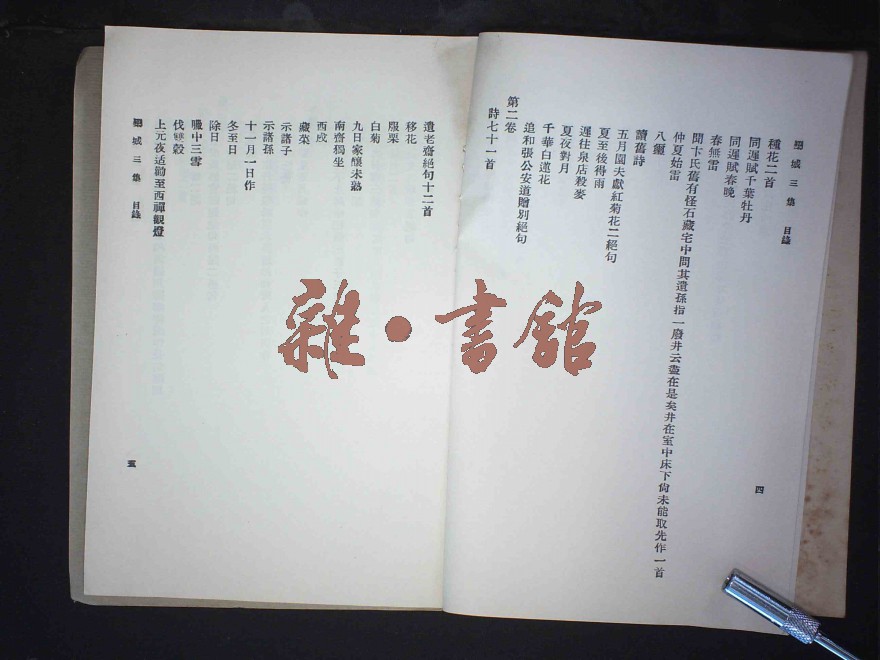 欒城三集 目錄
種花二首
同遲賦千葉牡丹
同遲賦春晚
春無雷
聞卞氏舊有怪石藏宅中問其遺孫指一廢井云盡在是矣井在室中床下尙未能取先作一首
仲夏始雷
八璽
讀舊詩
五月園夫獻紅菊花二絕句
夏至後得雨
遲往泉店殺麥
夏夜對月
千華白蓮花
追和張公安道贈別絕句
第二卷
詩七十一首
四
遺老齋絕句十二首
移花
罌粟
白菊
九日家釀未熟
南齋獨坐
酉戌
藏菜
示諸子
示諸孫
十一月一日作
冬至日
除日
臘中三雪
伐雙穀
上元夜适勸至西禪觀燈
欒城三集 目錄
五
雜·書館